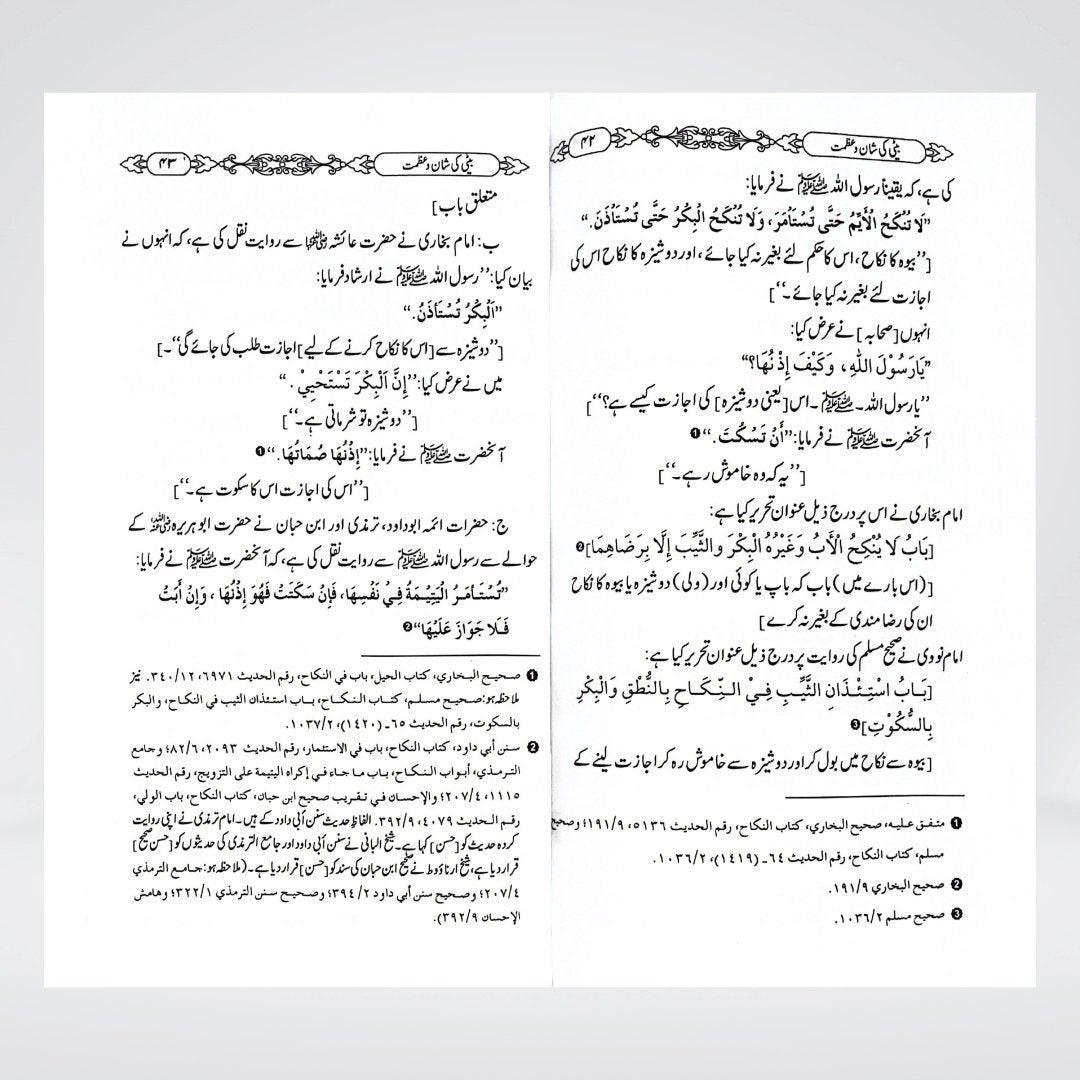 بیٹی کی شان و عظمت
۴۲
کی ہے، کہ یقیناً رسول اللہ ﷺ نے فرمایا:
”لَا تُنْكَحُ الْأَيِّمُ حَتَّى تُسْتَأْمَرَ، وَلَا تُنْكَحُ الْبِكْرُ حَتَّى تُسْتَأْذَنَ.“
[’’بیوہ کا نکاح، اس کا حکم لئے بغیر نہ کیا جائے، اور دوشیزہ کا نکاح اس کی
اجازت لئے بغیر نہ کیا جائے۔‘‘]
انہوں [صحابہ] نے عرض کیا:
”يَا رَسُوْلَ اللّٰهِ، وَكَيْفَ إِذْنُهَا؟“
’’یا رسول اللہ۔ ﷺ۔ اس [یعنی دوشیزہ] کی اجازت کیسے ہے؟‘‘]
آنحضرت ﷺ نے فرمایا: ”أَنْ تَسْكُتَ.“ ❶
[’’یہ کہ وہ خاموش رہے۔‘‘]
امام بخاری نے اس پر درج ذیل عنوان تحریر کیا ہے:
[بَابُ لَا يُنْكِحُ الْأَبُ وَغَيْرُهُ الْبِكْرَ والثَّيِّبَ إِلَّا بِرِضَاهِمَا] ❷
[(اس بارے میں) باب کہ باپ یا کوئی اور (ولی) دوشیزہ یا بیوہ کا نکاح
ان کی رضا مندی کے بغیر نہ کرے]
امام نووی نے صحیح مسلم کی روایت پر درج ذیل عنوان تحریر کیا ہے:
[بَابُ اسْتِئْذَانِ الثَّيِّبِ فِيْ النِّكَاحِ بِالنُّطْقِ وَالْبِكْرِ
بِالسُّكُوْتِ] ❸
[بیوہ سے نکاح میں بول کر اور دوشیزہ سے خاموش رہ کر اجازت لینے کے
❶ متفق علیه، صحيح البخاري، كتاب النكاح، رقم الحديث ٥١٣٦، ١٩١/٩؛ وصحيح
مسلم، كتاب النكاح، رقم الحديث ٦٤ـ (١٤١٩)، ١٠٣٦/٢.
❷ صحيح البخاري ١٩١/٩.
❸ صحيح مسلم ١٠٣٦/٢.
بیٹی کی شان و عظمت
۴۳
متعلق باب]
ب: امام بخاری نے حضرت عائشہ رضی اللہ عنہا سے روایت نقل کی ہے، کہ انہوں نے
بیان کیا: ’’رسول اللہ ﷺ نے ارشاد فرمایا:
”اَلْبِكْرُ تُسْتَأْذَنُ.“
[’’دوشیزہ سے [اس کا نکاح کرنے کے لیے] اجازت طلب کی جائے گی‘‘۔]
میں نے عرض کیا: ”إِنَّ الْبِكْرَ تَسْتَحْيِيْ.“
[’’دوشیزہ تو شرماتی ہے۔‘‘]
آنحضرت ﷺ نے فرمایا: ”إِذْنُهَا صُمَاتُهَا.“ ❶
[’’اس کی اجازت اس کا سکوت ہے۔‘‘]
ج: حضرات ائمہ ابو داود، ترمذی اور ابن حبان نے حضرت ابو ہریرہ رضی اللہ عنہ کے
حوالے سے رسول اللہ ﷺ سے روایت نقل کی ہے، کہ آنحضرت ﷺ نے فرمایا:
”تُسْتَأْمَرُ الْيَتِيْمَةُ فِيْ نَفْسِهَا، فَإِنْ سَكَتَتْ فَهُوَ إِذْنُهَا، وَإِنْ أَبَتْ
فَلَا جَوَازَ عَلَيْهَا“ ❷
❶ صحيح البخاري، كتاب الحيل، باب في النكاح، رقم الحديث ٦٩٧١، ٣٤٠/١٢. نیز
ملاحظہ ہو: صحيح مسلم، كتاب النكاح، باب استئذان الثيب في النكاح، والبكر
بالسكوت، رقم الحديث ٦٥ـ (١٤٢٠)، ١٠٣٧/٢.
❷ سنن أبي داود، كتاب النكاح، باب في الاستئمار، رقم الحديث ٢٠٩٣، ٨٢/٦؛ وجامع
الترمذي، أبواب النكاح، باب ما جاء في إكراه اليتيمة على التزويج، رقم الحديث
١١١٥، ٢٠٧/٤؛ والإحسان في تقريب صحيح ابن حبان، كتاب النكاح، باب الولي،
رقم الحديث ٤٠٧٩، ٣٩٢/٩. الفاظِ حدیث سنن أبی داود کے ہیں۔ امام ترمذی نے اپنی روایت
کردہ حدیث کو [حسن] کہا ہے۔ شیخ البانی نے سنن أبی داود اور جامع الترمذی کی حدیثوں کو [حسن صحیح]
قرار دیا ہے، شیخ ارناؤوط نے صحیح ابن حبان کی سند کو [حسن] قرار دیا ہے۔ (ملاحظہ ہو: جامع الترمذي
٢٠٧/٤؛ وصحيح سنن أبي داود ٣٩٤/٢؛ وصحيح سنن الترمذي ٣٢٢/١؛ وهامش
الإحسان ٣٩٢/٩).